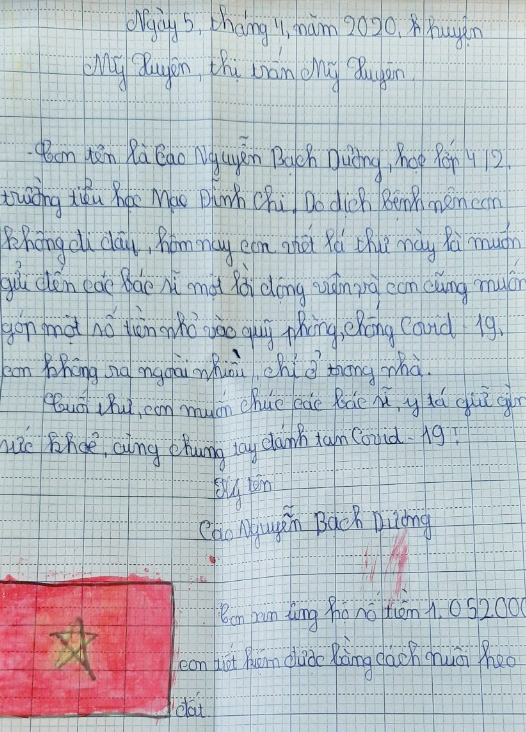 Ngày 5, tháng 4, năm 2020, ở huyện
Mỹ Xuyên, thị trấn Mỹ Xuyên
Con tên là Cao Nguyễn Bạch Dương, học lớp 4/2,
trường tiểu học Mạc Đĩnh Chi. Do dịch bệnh nên con
không đi đâu, hôm nay con viết lá thư này là muốn
gửi đến các bác sĩ một lời động viên và con cũng muốn
góp một số tiền nhỏ vào quỹ phòng, chống Covid - 19.
con không ra ngoài nhiều, chỉ ở trong nhà.
Cuối thư, con muốn chúc các bác sĩ, y tá giữ gìn
sức khoẻ, cùng chung tay đánh tan Covid - 19!
Ký tên
Cao Nguyễn Bạch Dương
Con xin ủng hộ số tiền 1.052000
con tiết kiệm được bằng cách nuôi heo
đất.